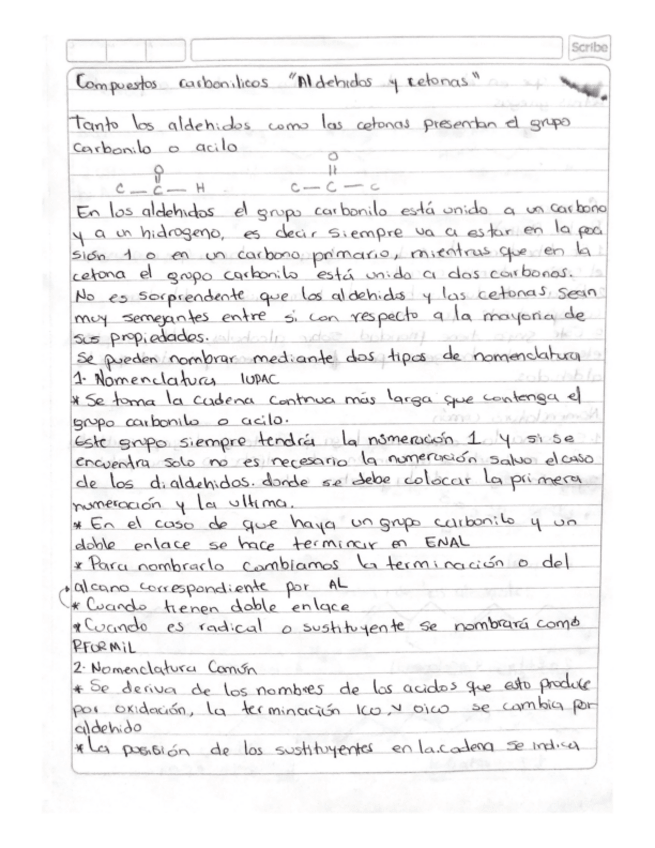 Scribe
Compuestos carbonilicos "Aldehidos y cetonas"
Tanto los aldehidos como las cetonas presentan el grupo
carbonilo o acilo
O O
C — C — H C — C — C
En los aldehidos el grupo carbonilo está unido a un carbono
y a un hidrogeno, es decir siempre va a estar en la posi
sión 1 o en un carbono primario, mientras que en la
cetona el grupo carbonilo está unido a dos carbonos.
No es sorprendente que los aldehidos y las cetonas sean
muy semejantes entre si con respecto a la mayoria de
sus propiedades.
Se pueden nombrar mediante dos tipos de nomenclatura
1. Nomenclatura IUPAC
* Se toma la cadena continua más larga que contenga el
grupo carbonilo o acilo.
Este grupo siempre tendrá la numeración 1 y si se
encuentra solo no es necesario la numeración salvo el caso
de los dialdehidos. donde se debe colocar la primera
numeración y la ultima.
* En el caso de que haya un grupo carbonilo y un
doble enlace se hace terminar en ENAL
* Para nombrarlo cambiamos la terminación o del
alcano correspondiente por AL
* Cuando tienen doble enlace
* Cuando es radical o sustituyente se nombrará como
FORMIL
2. Nomenclatura Común
* Se deriva de los nombres de los acidos que esto produce
por oxidación, la terminación ICO, v oico se cambia por
aldehido
* La posisión de los sustituyentes en la cadena se indica